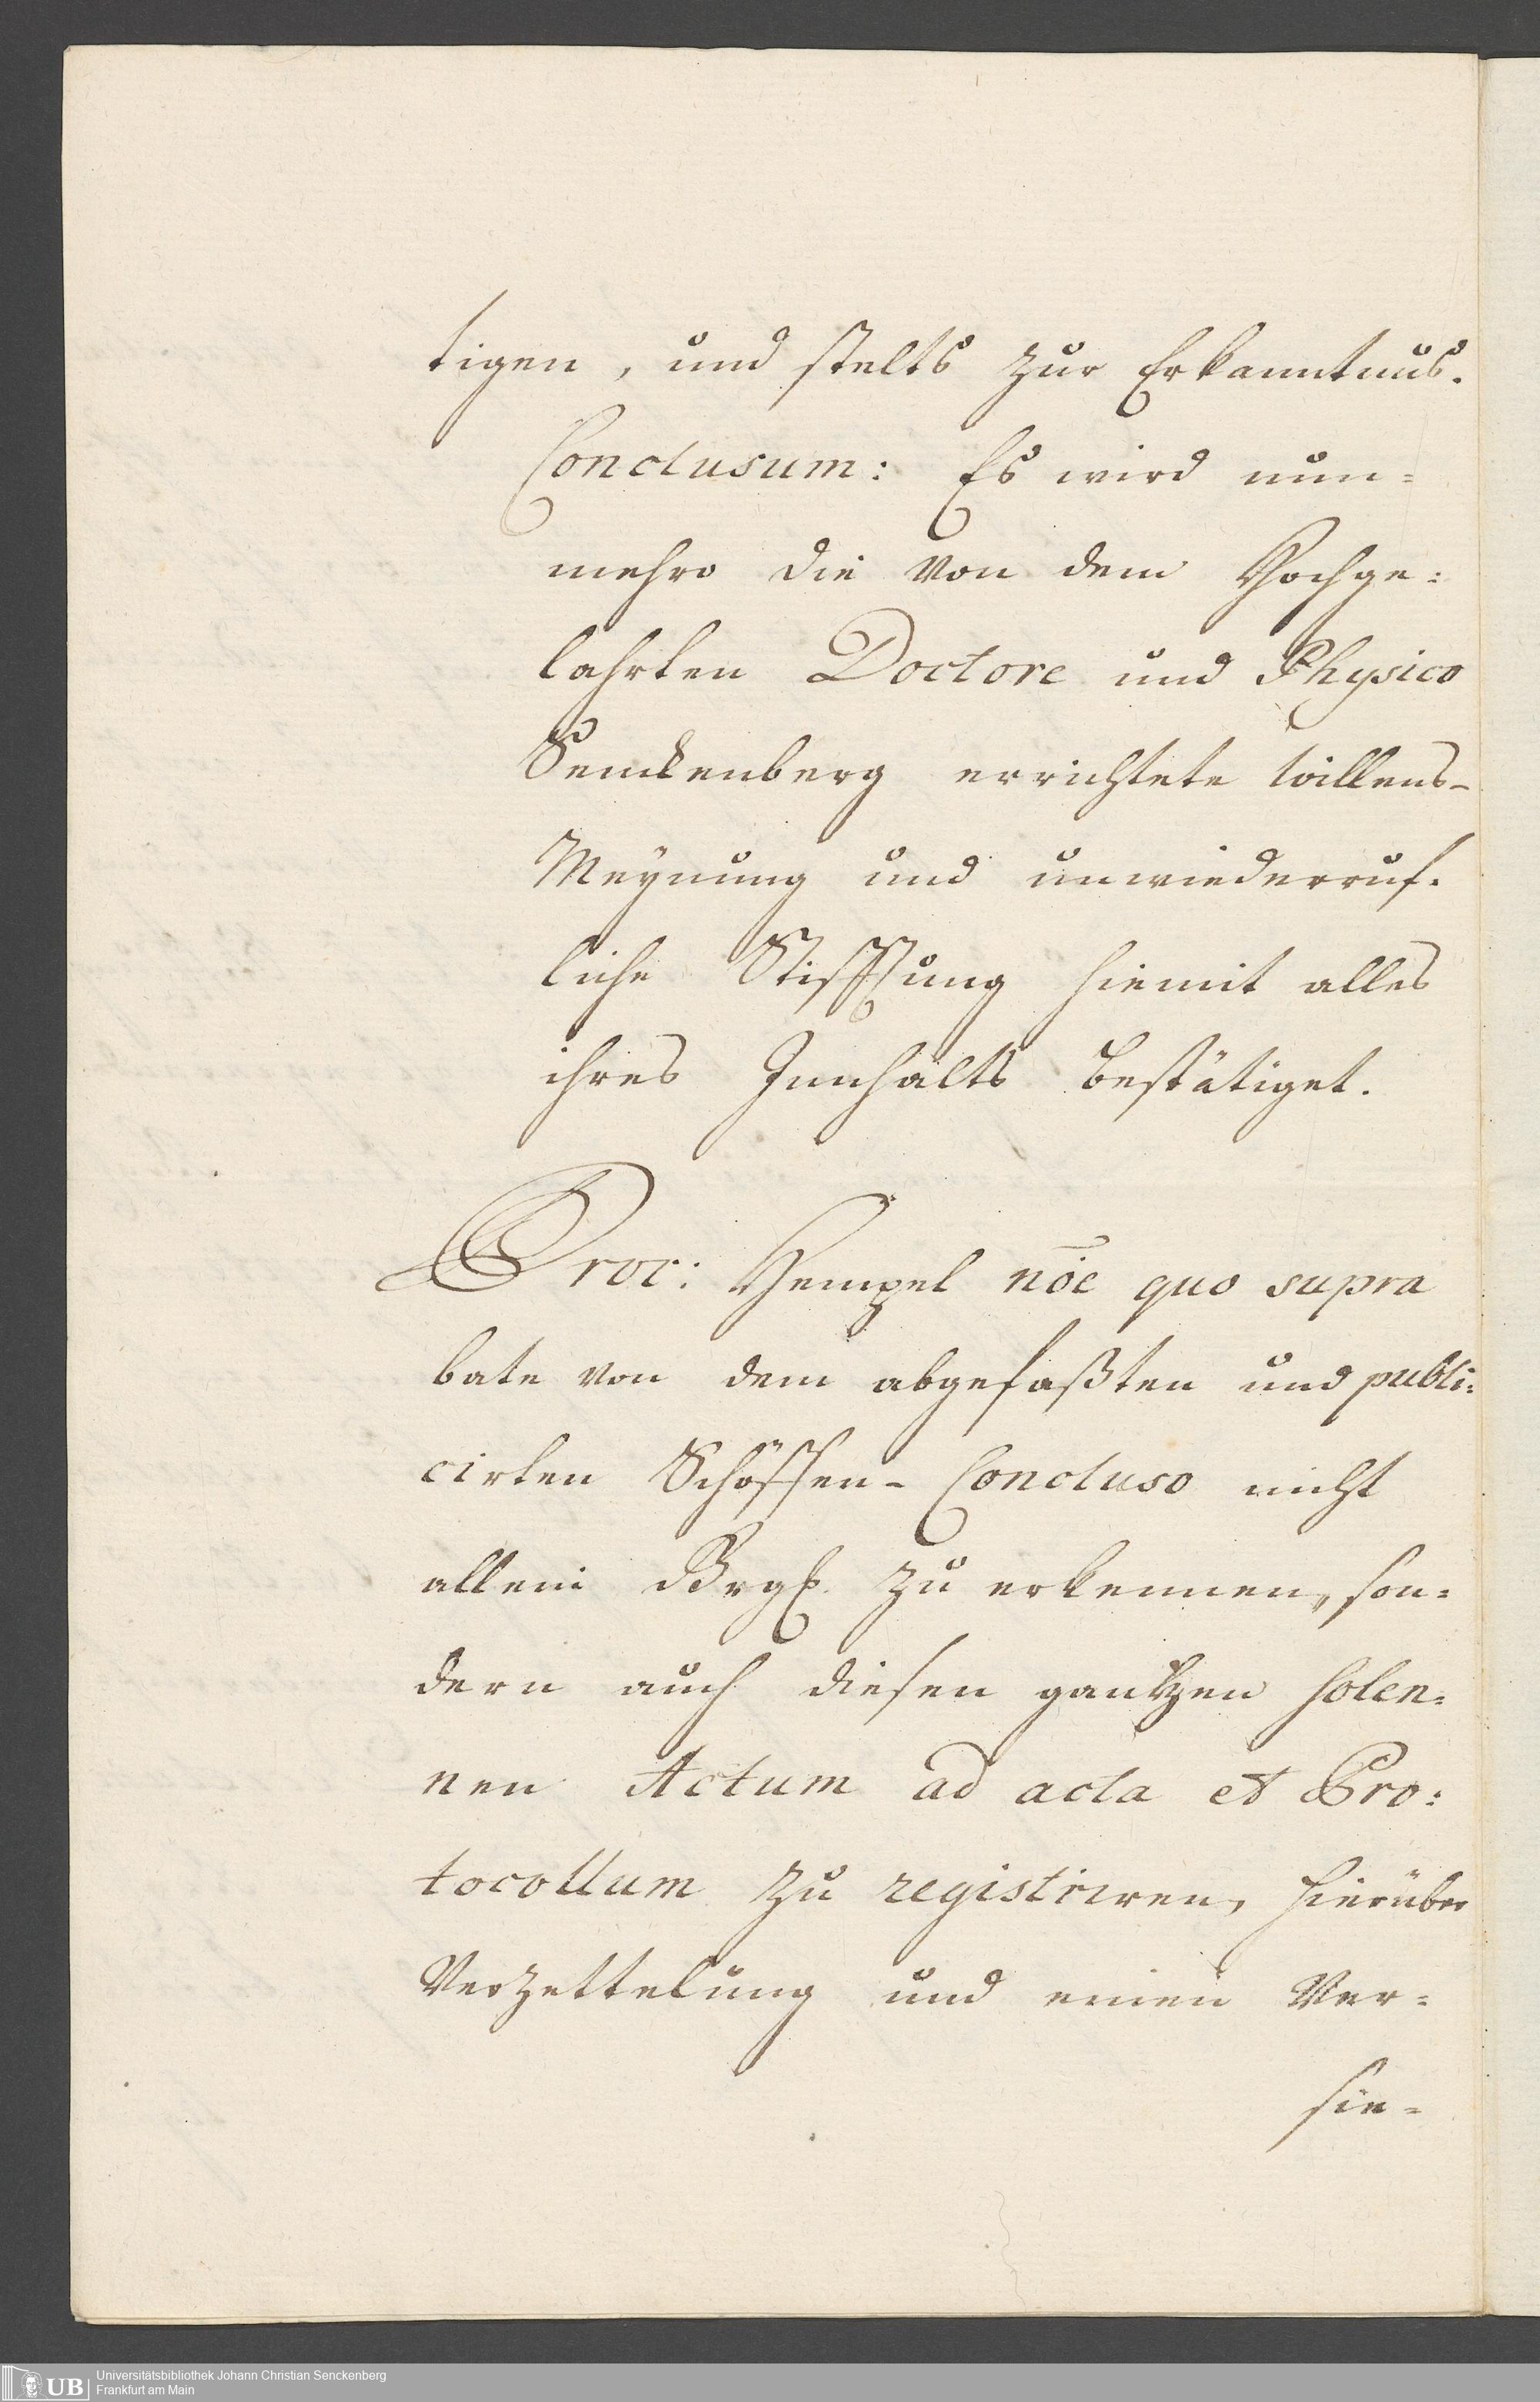 tigen, und stelts zur Erkanntnus.
Conclusum: Es wird nun=
mehro die von dem Hochge=
lahrten Doctore und Physico
Senckenberg errichtete Willens-
Meynung und unwiederruf=
liche Stifftung hiemit alles
ihres Innhalts bestätiget.
Proc: Hempel nōie quo supra
bate von dem abgefaßten und publi=
cirten Schöffen-Concluso nicht
allein zu erkennen, son=
dern auch diesen gantzen solen=
nen Actum ad acta et Pro=
tocollum zu registriren, hierüber
Verzettelung und einen Ver=
sie=
Universitätsbibliothek Johann Christian Senckenberg
Frankfurt am Main
UB